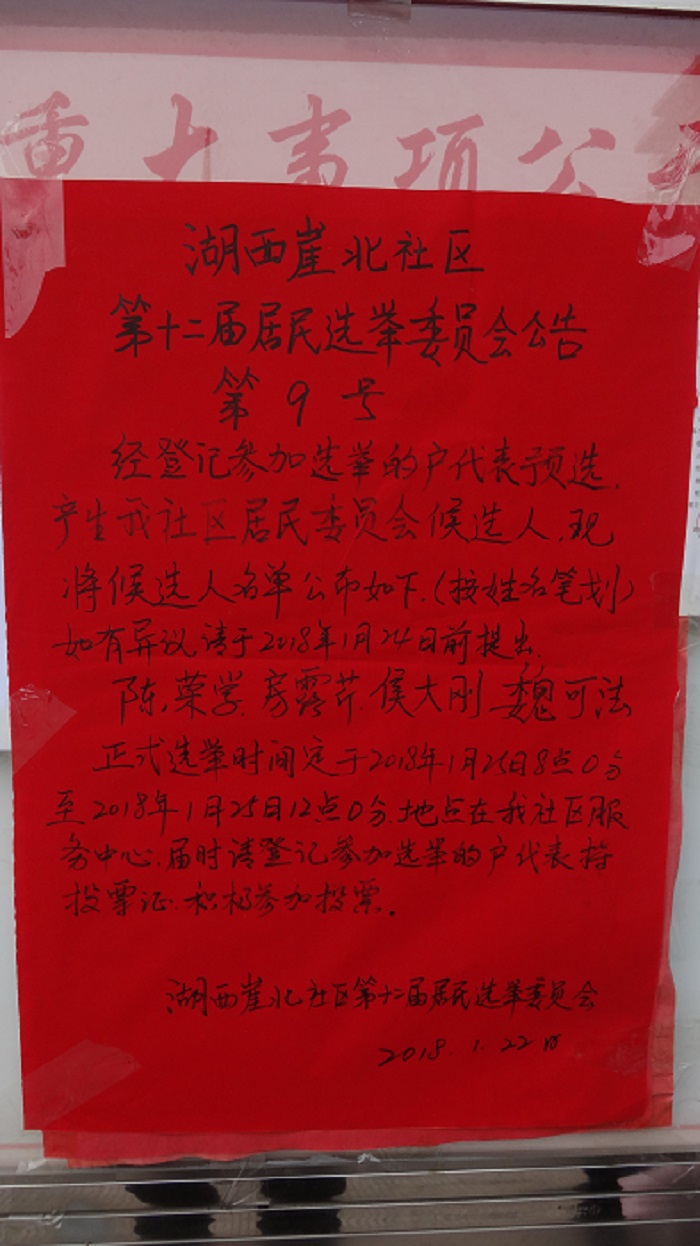 重大事项公
湖西崖北社区
第十二届居民选举委员会公告
第9号
经登记参加选举的户代表预选,
产生我社区居民委员会候选人,现
将候选人名单公布如下.(按姓名笔划)
如有异议,请于2018年1月24日前提出.
陈荣学.房露芹.侯大刚 魏可法
正式选举时间定于2018年1月25日8点0分
至2018年1月25日12点0分.地点在我社区服
务中心.届时请登记参加选举的户代表持
投票证.积极参加投票。
湖西崖北社区第十二届居民选举委员会
2018.1.22日